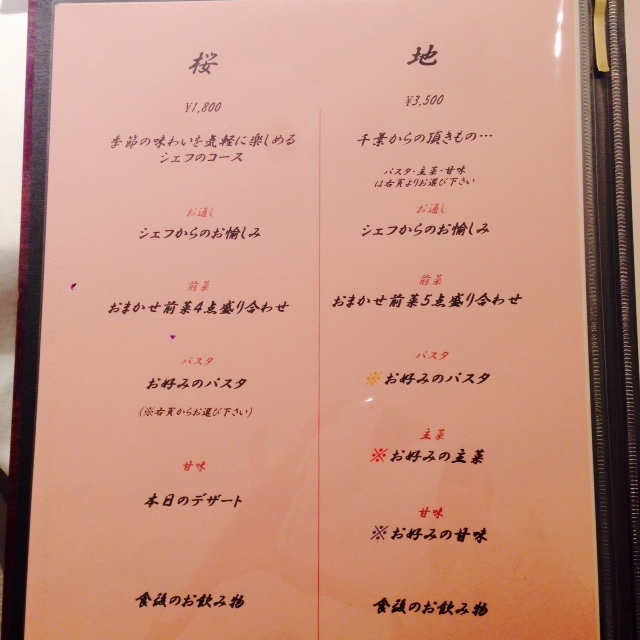 桜
¥1,800
季節の味わいを気軽に楽しめる
シェフのコース
お通し
シェフからのお愉しみ
前菜
おまかせ前菜4点盛り合わせ
パスタ
お好みのパスタ
(※右頁からお選び下さい)
甘味
本日のデザート
食後のお飲み物
地
¥3,500
千葉からの頂きもの…
パスタ・主菜・甘味
は右頁よりお選び下さい
お通し
シェフからのお愉しみ
前菜
おまかせ前菜5点盛り合わせ
パスタ
※お好みのパスタ
主菜
※お好みの主菜
甘味
※お好みの甘味
食後のお飲み物